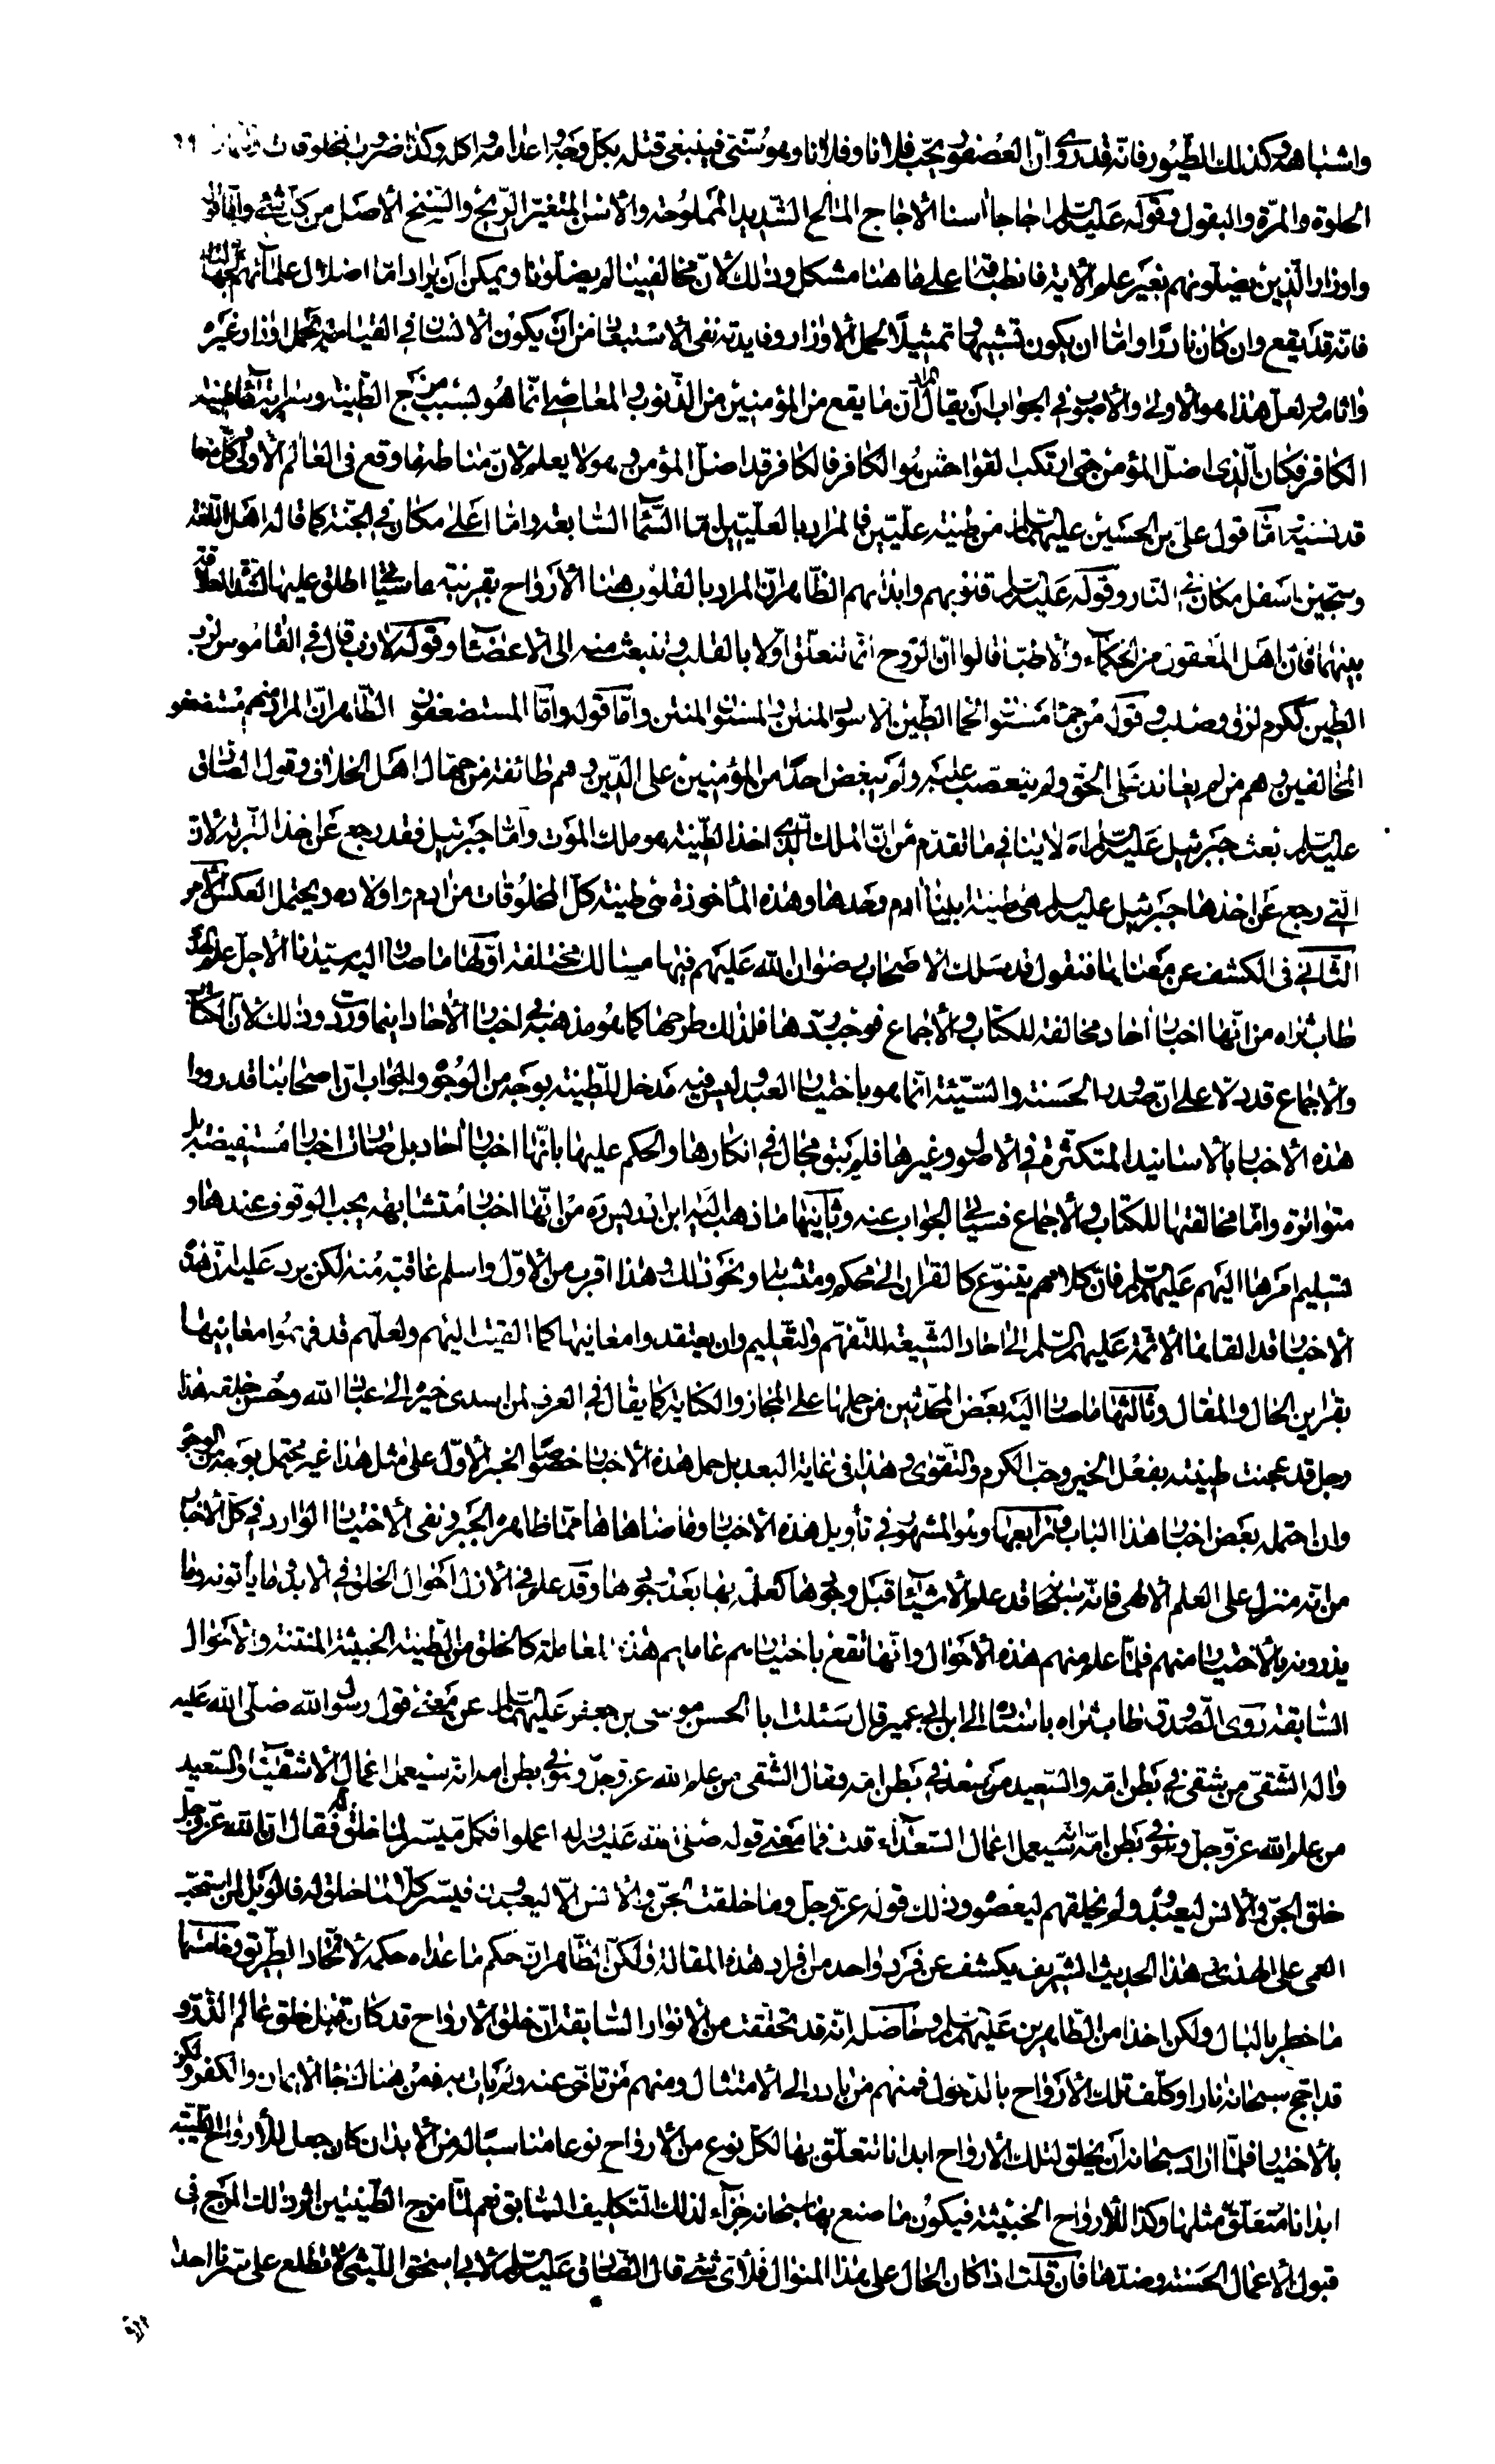 واشباهه وكذلك الطيور فانه قد روى ان العصفور يحب فلانا وفلانا وهو سنى فينبغى قتله بكل وجه واعدامه واكله وكذا ضروب المخلوقات
الحلوة والمرة والبقول وقوله عليه السلام اجاجا آسنا الأجاج المالح الشديد المملوحة والأسن المتغير الريح والسنخ الأصل من كل شئ واما قوله
واوزار الذين يضلونهم بغير علم الآية فانطباقها على ما هنا مشكل وذلك لأن مخالفينا لم يضلونا ويمكن ان يراد اما اضلال علمائهم لجهالهم
فانه قد يقع وان كان نادرا واما ان يكون تشبيها وتمثيلا لحمل الأوزار وفايدته نفى الاستبعاد من ان يكون الانسان فى القيامة يحمل اوزار غيره
واثامه ولعل هذا هو الأولى والأصوب فى الجواب ان يقال المراد ان ما يقع من المؤمنين من الذنوب والمعاصى انما هو بسبب مزج الطينة وسراية طينة
الكافر فكان الذى اضل المؤمن حتى ارتكب الفواحش هو الكافر فالكافر قد اضل المؤمن وهو لا يعلم لأن مناطه ما وقع فى العالم الأول وكل منهما
قد نسيه اما قول على بن الحسين عليهما السلام من طينة عليين فالمراد بالعليين اما السماء السابعة واما اعلى مكان فى الجنة كما قاله اهل اللغة
وسجين اسفل مكان فى النار وقوله عليه السلام قلوبهم وابدانهم الظاهر ان المراد بالقلوب هنا الأرواح بقرينة ما سيأتى اطلق عليها لشدة العلاقة
بينهما فان اهل المعقول من الحكماء والأطباء قالوا ان الروح انما تتعلق اولا بالقلب وتنبعث منه الى الأعضاء وقوله لازب قال فى القاموس لزب
الطين ككرم لزق وصلب وقوله من حمأ مسنون الحمأ الطين الاسود المنتن والمسنون المنتن واما قوله واما المستضعفون الظاهر ان المراد منهم مستضعفو
المخالفين وهم من لم يعاند على الحق ولم يتعصب عليه ولم يبغض احدا من المؤمنين على الدين وهم طائفة من جهال اهل الخلاف وقول الصادق
عليه السلام بعث جبرئيل عليه السلام اه لا ينافى ما تقدم من ان الملك الذى اخذ الطينة هو ملك الموت واما جبرئيل فقد رجع عن اخذ التربة لان
التى رجع عن اخذها جبرئيل عليه السلام هى طينة ابينا آدم وحدها وهذه المأخوذة هى طينة كل المخلوقات من آدم واولاده ويحتمل العكس الأمر
الثانى فى الكشف عن معناها فنقول قد سلك الأصحاب رضوان الله عليهم فيها مسالك مختلفة اولها ما صار اليه سيدنا الأجل علم الهدى
طاب ثراه من انها اخبار آحاد مخالفة للكتاب والأجماع فوجب ردها فلذلك طرحها كما هو مذهبه فى اخبار الآحاد اينما وردت وذلك لأن الكتاب
والأجماع قد دلا على ان صدور الحسنة والسيئة انما هو باختيار العبد وليس فيه مدخل للطينة بوجه من الوجوه والجواب ان اصحابنا قد رووا
هذه الأخبار بالأسانيد المتكثرة فى الأصول وغيرها فلم يبق مجال فى انكارها والحكم عليها بانها اخبار آحاد بل صارت اخبارا مستفيضة بل
متواترة واما مخالفتها للكتاب والأجماع فسيأتى الجواب عنه وثانيها ما ذهب اليه ابن ادريس ره من انها اخبار متشابهة يجب الوقوف عندها و
تسليم امرها اليهم عليهم السلام فان كلامهم يتنوع كالقران الى محكم ومتشابه ونحو ذلك وهذا اقرب من الأول واسلم عاقبة منه لكن يرد عليه ان هذه
الأخبار قد القاها الأئمة عليهم السلام الى آحاد الشيعة للتفهم والتعليم وان يعتقدوا معانيها كما القيت اليهم ولعلهم قد فهموا معانيها
بقراين الحال والمقال وثالثها ما صار اليه بعض المحدثين من حملها على المجاز والكناية كما يقال فى العرف لمن اسدى خيره الى عباد الله وحسن خلقه هذا
رجل قد عجنت طينته بفعل الخير وحب الكرم والتقوى وهذا فى غاية البعد بل حمل هذه الأخبار خصوصا الخبر الأول على مثل هذا غير محتمل بوجه من الوجوه
وان احتمله بعض اخبار هذا الباب ورابعها وهو المشهور فى تأويل هذه الأخبار وما ضاهاها مما ظاهره الجبر ونفى الأختيار الوارد فى كل الأخبار
من انه منزل على العلم الألهى فانه سبحانه قد علم الأشياء قبل وجودها كعلمه بها بعد وجودها وقد علم فى الأزل احوال الخلق فى الأبد وما يأتونه وما
يذرونه بالأختيار منهم فلما علم منهم هذه الأحوال وانها تقع باختيارهم عاملهم هذه المعاملة كالخلق من الطينة الخبيثة المنتنة والأحوال
السابقة روى الصدوق طاب ثراه باسناده الى ابن ابى عمير قال سئلت ابا الحسن موسى بن جعفر عليهما السلام عن معنى قول رسول الله صلى الله عليه
واله الشقى من شقى فى بطن امه والسعيد من سعد فى بطن امه فقال الشقى من علم الله عز وجل وهو فى بطن امه انه سيعمل اعمال الأشقياء والسعيد
من علم الله عز وجل وهو فى بطن امه انه سيعمل اعمال السعداء قلت فما معنى قوله صلى الله عليه واله اعملوا فكل ميسر لما خلق له فقال ان الله عز وجل
خلق الجن والأنس ليعبدوه ولم يخلقهم ليعصوه وذلك قوله عز وجل وما خلقت الجن والأنس الا ليعبدون فيسر كلا لما خلق له فالويل لمن استحب
العمى على الهدى هذا الحديث الشريف يكشف عن فرد واحد من افراد هذه المقالة ولكن الظاهر ان حكم ما عداه حكمه لاتحاد الطريق وخامسها
ما خطر بالبال ولكن اخذا من الطاهرين عليهم السلام وحاصله انه قد تحققت من الأنوار السابقة ان خلق الأرواح قد كان قبل خلق عالم الذر و
قد اجج سبحانه نارا وكلف تلك الأرواح بالدخول فمنهم من بادر الى الأمتثال ومنهم من تأخر عنه ولم يأت به فمن هناك جاء الأيمان والكفر ولكن
بالأختيار فلما اراد سبحانه ان يخلق لتلك الأرواح ابدانا تتعلق بها لكل نوع من الأرواح نوعا مناسبا له من الأبدان كان جعل للأرواح الطيبة
ابدانا متعلق مثلها وكذا للأرواح الخبيثة فيكون ما صنع بها سبحانه جزاء لذلك التكليف السابق نعم لما مزج الطينتين اثر ذلك المزج فى
قبول الأعمال الحسنة وضدها فان قلت اذا كان الحال على هذا المنوال فلأى شئ قال الصادق عليه السلام لأبى اسحق الليثى لا تطلع على سرنا احدا